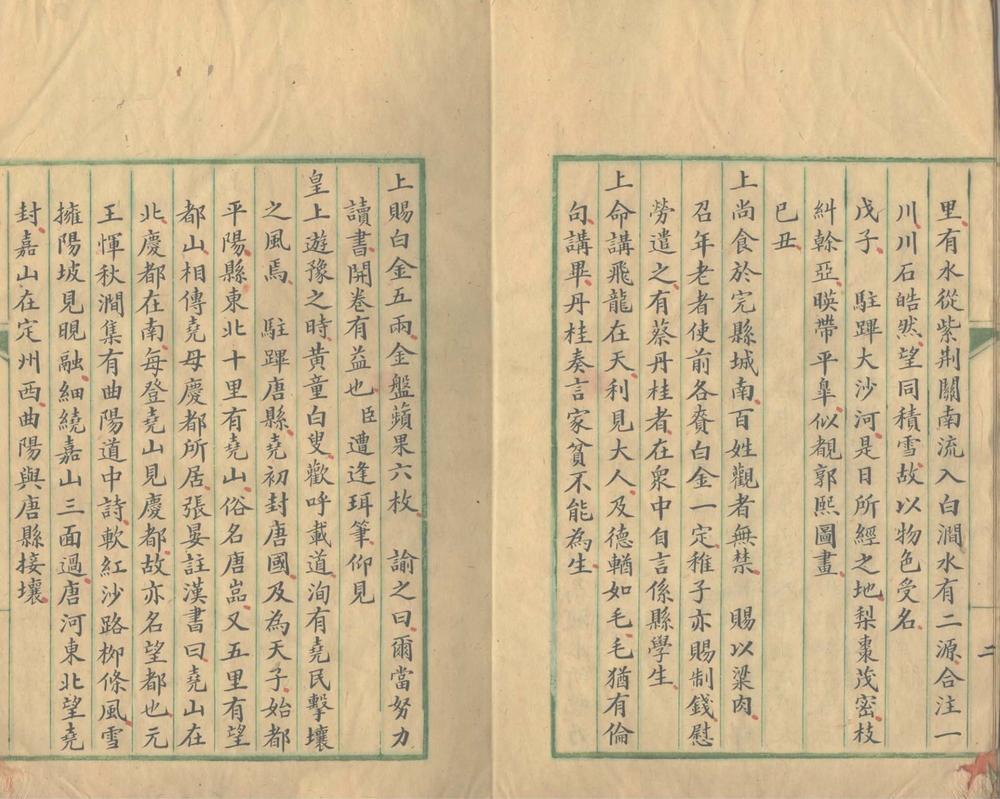 里有水從紫荆關南流入白澗水有二源合注一
川川石皓然望同積雪故以物色受名
戊子　駐蹕大沙河是日所經之地梨棗茂密枝
糾榦亞暎帶平臯似覩郭熙圖畫
巳丑
上尚食於完縣城南百姓觀者無禁　賜以粱肉
召年老者使前各賚白金一定稚子亦賜制錢慰
勞遣之有蔡丹桂者在衆中自言係縣學生
上命講飛龍在天利見大人及德輶如毛毛猶有倫
句講畢丹桂奏言家貧不能為生
上賜白金五兩金盤蘋果六枚　諭之曰爾當努力
讀書開卷有益也臣遭逢珥筆仰見
皇上遊豫之時黃童白叟歡呼載道洵有堯民擊壤
之風焉　駐蹕唐縣堯初封唐國及為天子始都
平陽縣東北十里有堯山俗名唐嵓又五里有望
都山相傳堯母慶都所居張晏註漢書曰堯山在
北慶都在南每登堯山見慶都故亦名望都也元
王惲秋澗集有曲陽道中詩軟紅沙路柳條風雪
擁陽坡見晛融細繞嘉山三面過唐河東北望堯
封嘉山在定州西曲陽與唐縣接壤
二